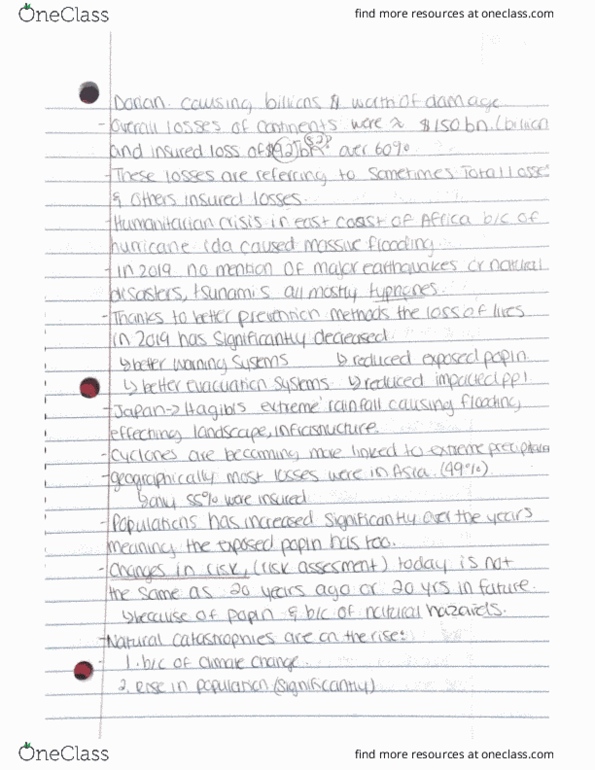 OneClass
find more resources at oneclass.com
Dorian. causing billions $ worth of damage
- Overall losses of continents were ≈ $150 bn. (billion
and insured loss of $(92) over 60%
- These losses are referring to sometimes Total losse
& others insured losses.
- Humanitarian crisis in east coast of Africa b/c of
hurricane Ida caused massive flooding.
- In 2019 no mention of major earthquakes or natural
disasters, tsunamis all mostly typhones.
- Thanks to better prevention methods the loss of lives
in 2019 has significantly decreased.
↳ better warning systems ↳ reduced exposed pop'n
↳ better evacuation systems ↳ reduced impacted ppl
- Japan -> Hagibis extreme rainfall causing flooding,
effecting landscape, infrastructure.
- Cyclones are becoming more linked to extreme precipitation
- geographically most losses were in Asia. (44%)
↳ only 55% were insured
- Populations has increased significantly over the years
meaning the exposed pop'n has too.
- Changes in risk, (risk assesment) today is not
the same as 20 years ago or 20 yrs in future.
↳ because of pop'n & b/c of natural hazards.
- Natural catastrophies are on the rise:
1. b/c of climate change.
2. rise in population (significantly)
OneClass
find more resources at oneclass.com